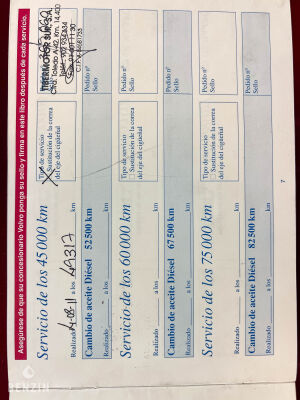 Asegúrese de que su concesionario Volvo ponga su sello y firma en este libro después de cada servicio.
Servicio de los 45 000 km
Tipo de servicio
Sustitución de la correa
del eje del cigüeñal
TIBERMOTOR SUR, S.A.
Ctra. Toledo A-42, Km. 14,400
Realizado 14-03-11 a los km
Cambio de aceite Diésel 52 500 km
Pedido nº
Sello
Realizado a los km
Servicio de los 60 000 km
Tipo de servicio
Sustitución de la correa
del eje del cigüeñal
Pedido nº
Sello
Realizado a los km
Cambio de aceite Diésel 67 500 km
Pedido nº
Sello
Realizado a los km
Servicio de los 75 000 km
Tipo de servicio
Sustitución de la correa
del eje del cigüeñal
Pedido nº
Sello
Realizado a los km
Cambio de aceite Diésel 82 500 km
Pedido nº
Sello
Realizado a los km
7
BENZIN